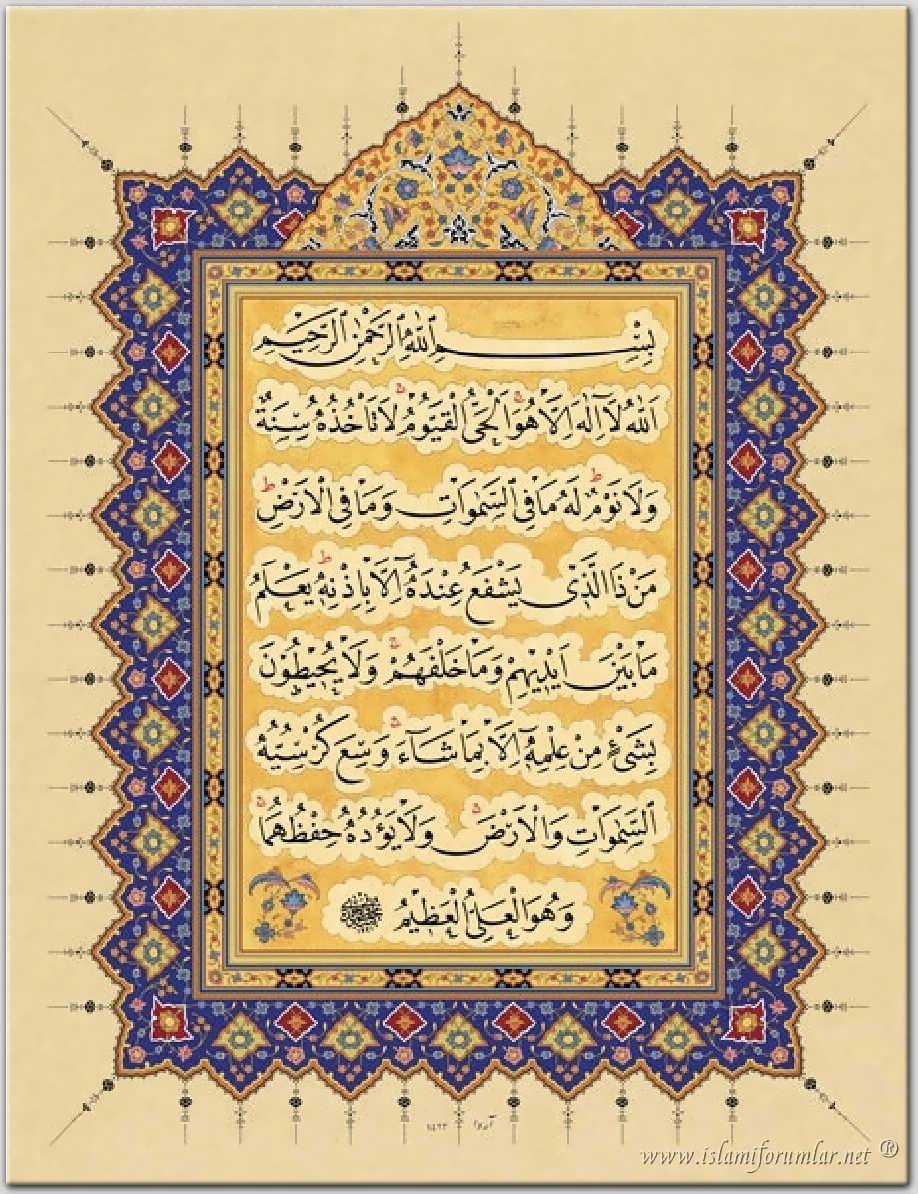 بِسْمِ ٱللّٰهِ ٱلرَّحْمٰنِ ٱلرَّحِيمِ
اَللّٰهُ لَٓا اِلٰهَ اِلَّا هُوَ الْحَىُّ الْقَيُّومُ لَا تَأْخُذُهُ سِنَةٌ
وَلَا نَوْمٌ لَهُ مَا فِى السَّمٰوَاتِ وَمَا فِى الْاَرْضِ
مَنْ ذَا الَّذٖى يَشْفَعُ عِنْدَهُٓ اِلَّا بِاِذْنِهٖ يَعْلَمُ
مَا بَيْنَ اَيْدٖيهِمْ وَمَا خَلْفَهُمْ وَلَا يُحٖيطُونَ
بِشَىْءٍ مِنْ عِلْمِهٖٓ اِلَّا بِمَا شَٓاءَ وَسِعَ كُرْسِيُّهُ
السَّمٰوَاتِ وَالْاَرْضَ وَلَا يَؤُدُهُ حِفْظُهُمَا
وَهُوَ الْعَلِىُّ الْعَظٖيمُ
www.islamiforumlar.net ®